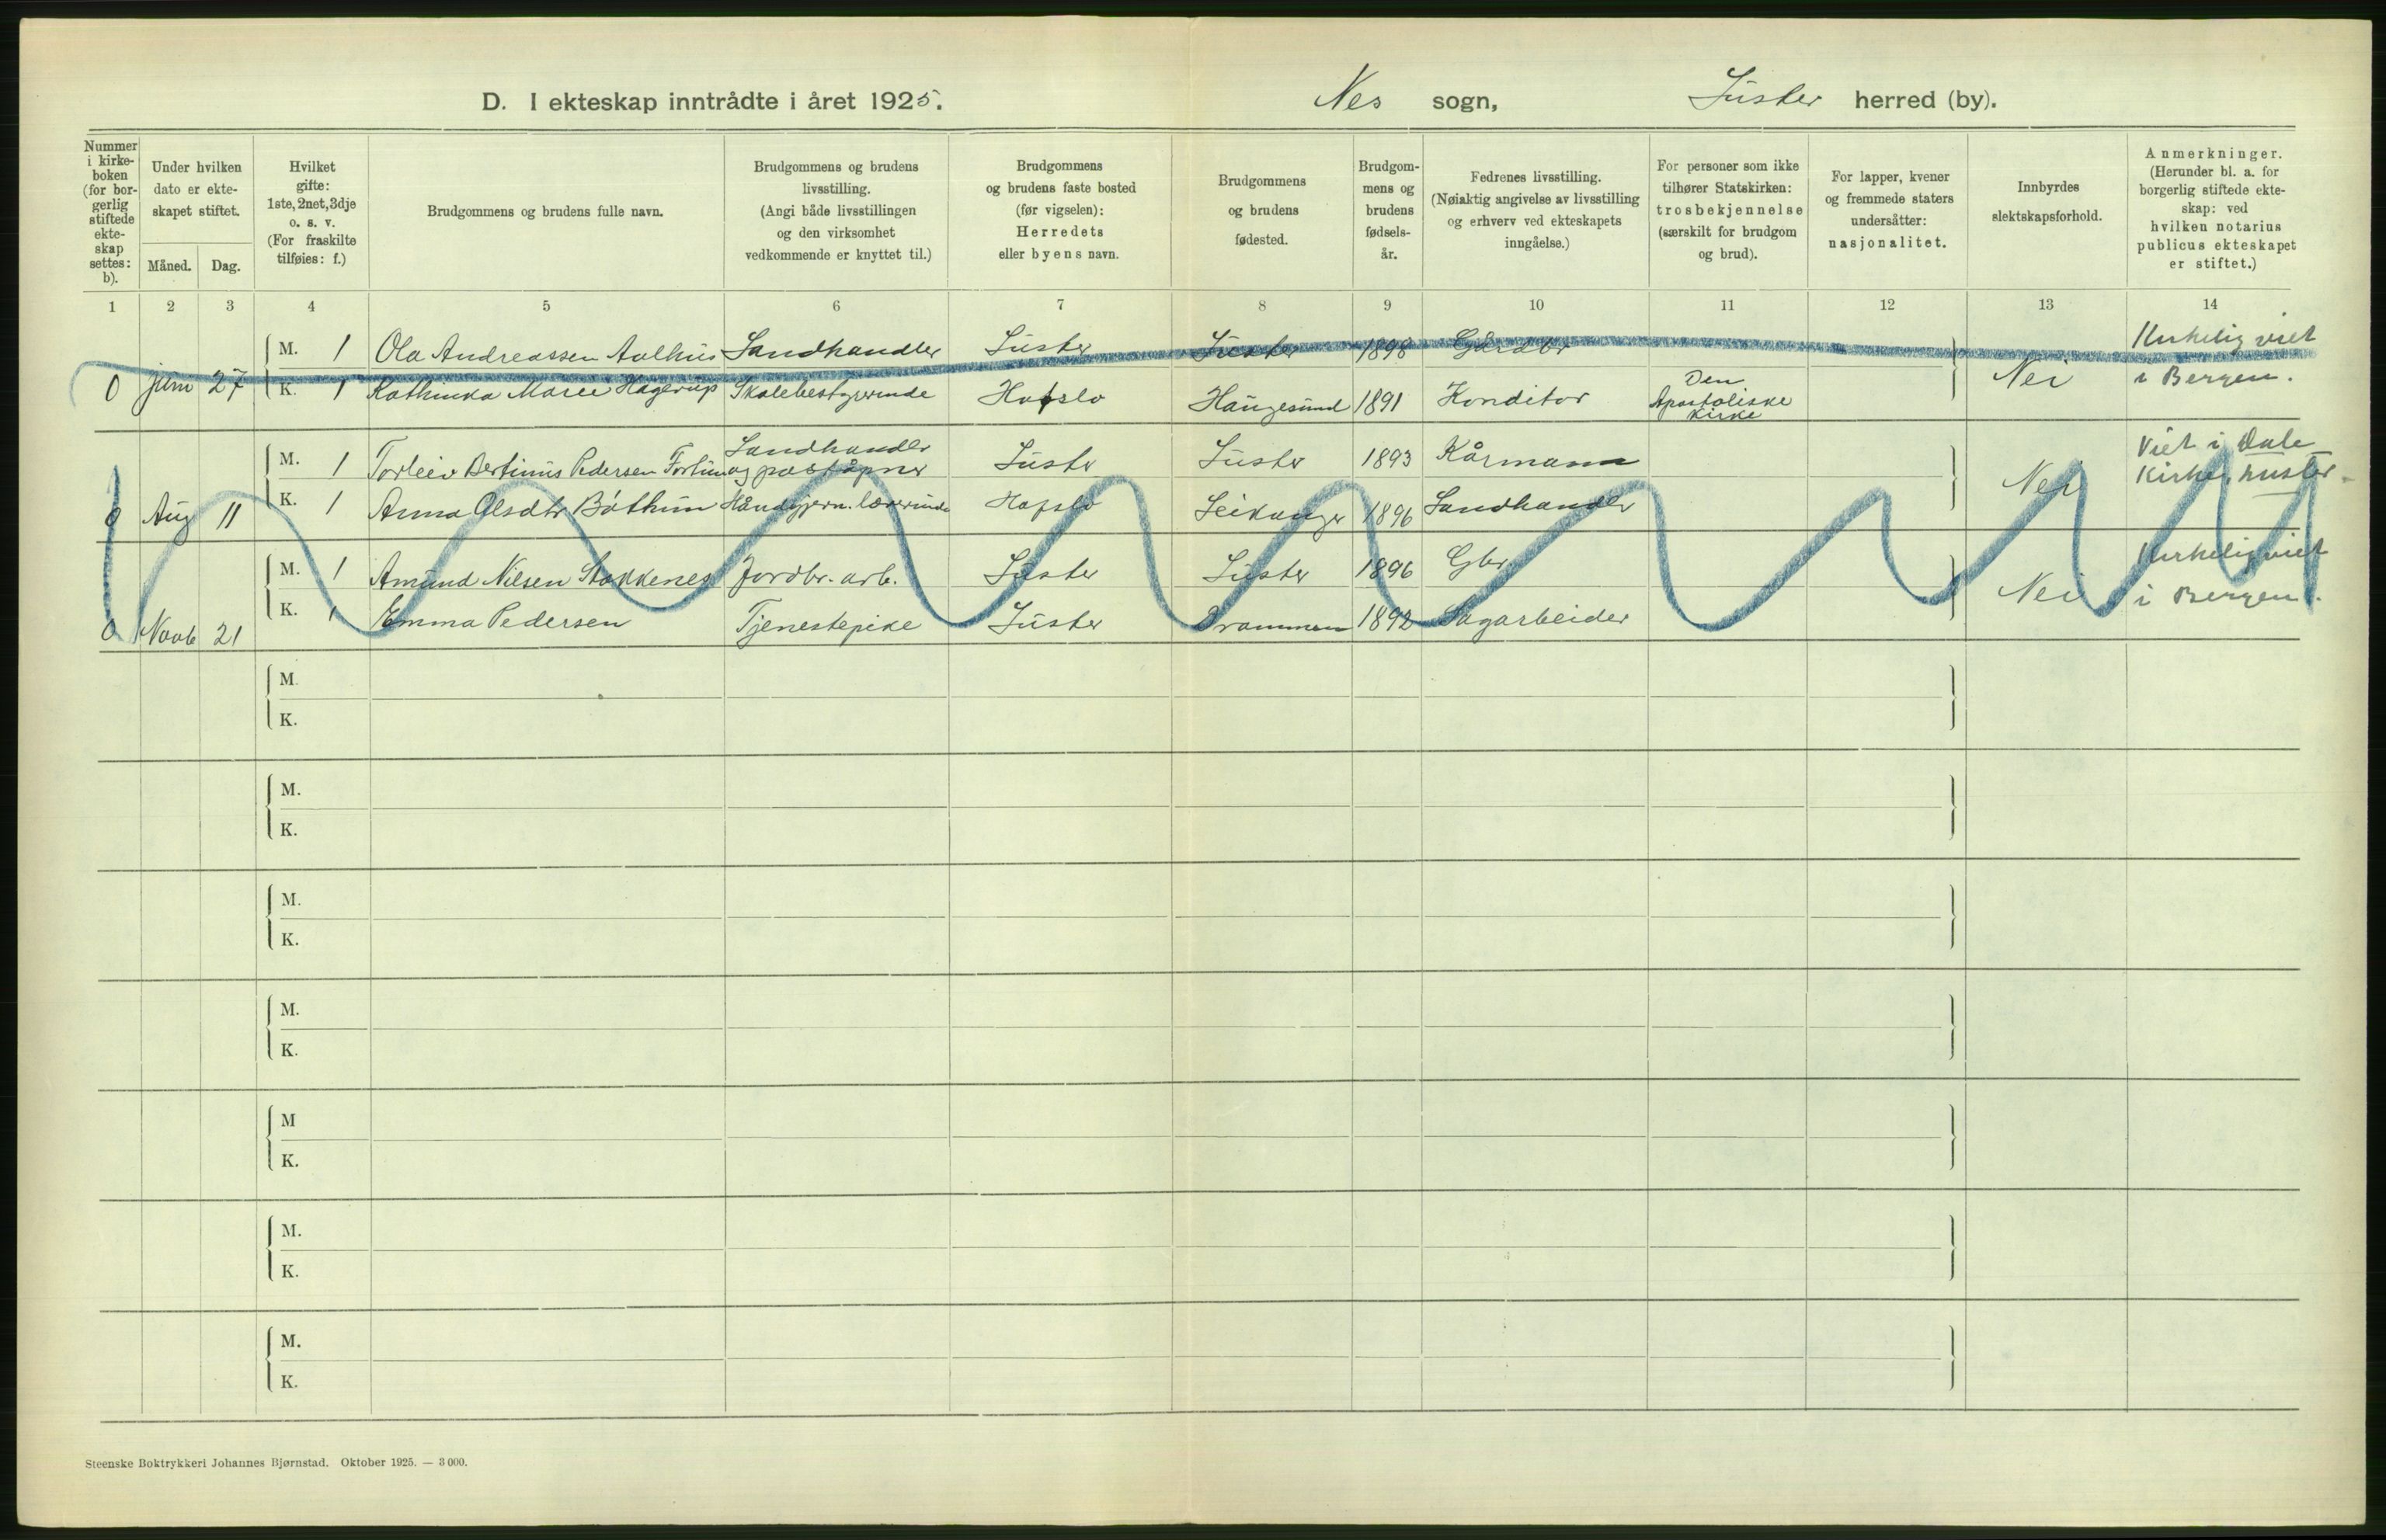 D. I ekteskap inntrådte i året 1925.
Nes sogn, Lüster herred (by).
Nummer i kirke-boken (for bor-gerlig stiftede ekte-skap settes: b).
Under hvilken dato er ekte-skapet stiftet.
Måned. Dag.
Hvilket gifte: 1ste, 2net, 3dje o. s. v. (For fraskilte tilføies: f.)
Brudgommens og brudens fulle navn.
Brudgommens og brudens livsstilling. (Angi både livsstillingen og den virksomhet vedkommende er knyttet til.)
Brudgommens og brudens faste bosted (før vigselen): Herredets eller byens navn.
Brudgommens og brudens fødested.
Brudgom-mens og brudens fødsels-år.
Fedrenes livsstilling. (Nøiaktig angivelse av livsstilling og erhverv ved ekteskapets inngåelse.)
For personer som ikke tilhører Statskirken: trosbekjennelse (særskilt for brudgom og brud).
For lapper, kvener og fremmede staters undersåtter: nasjonalitet.
Innbyrdes slektskapsforhold.
Anmerkninger. (Herunder bl. a. for borgerlig stiftede ekte-skap: ved hvilken notarius publicus ekteskapet er stiftet.)
1 2 3 4 5 6 7 8 9 10 11 12 13 14
M. 1 Ola Andreassen Aalhus Landhandler Lüster Lüster 1898 Gårdbr Kirkelig viet
0 juni 27 K. 1 Kathinka Marie Hagerup Skolebestyrerinde Hafslo Haugesund 1891 Konditor Den Apostoliske Kirke Nei i Bergen.
M. 1 Torleiv Bertinus Pedersen Fortun Landhandler og poståpner Lüster Lüster 1893 Kårmann Viet i Dale
0 Aug 11 K. 1 Anna Olsdtr Bøthun Håndgjern. lærerinde Hafslo Leikanger 1896 Landhandler Nei Kirke, Luster.
M. 1 Amund Nilsen Stokkenes Jordbr. arb. Lüster Lüster 1896 Gbr. Kirkelig viet
0 Novb 21 K. 1 Emma Pedersen Tjenestepike Lüster Drammen 1892 Sagarbeider Nei i Bergen.
M.
K.
M.
K.
M.
K.
M.
K.
M
K.
M.
K.
M.
K.
Steenske Boktrykkeri Johannes Bjørnstad. Oktober 1925. — 3 000.